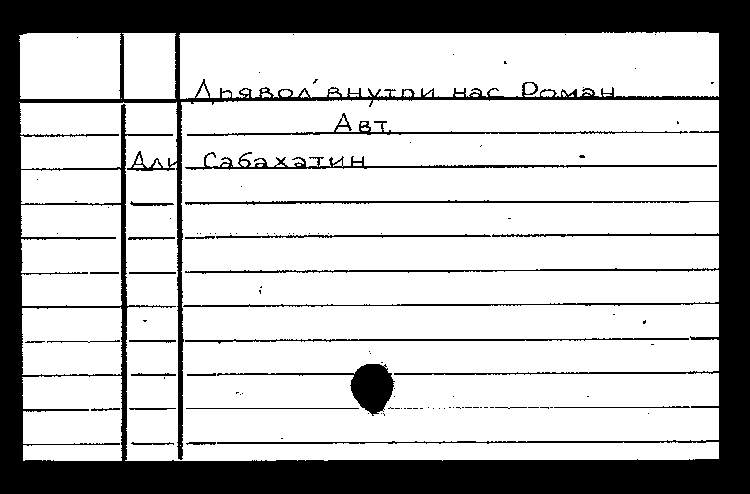 Дрявол внутри нас Роман
Авт.
Али Сабахатин